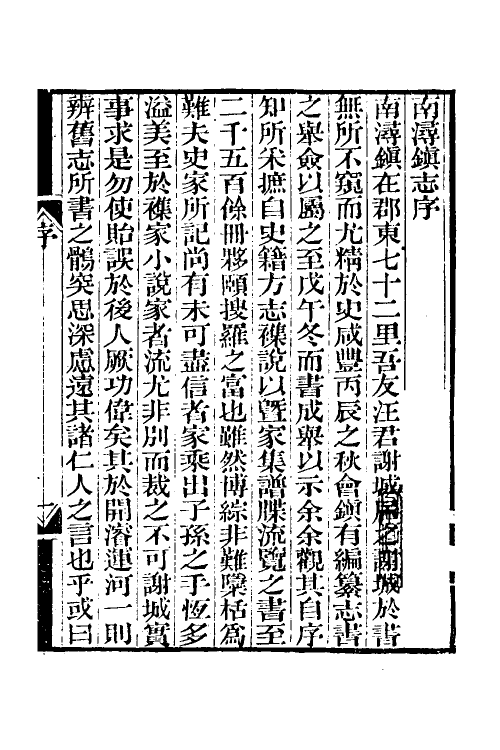 南潯鎮志序
南潯鎮在郡東七十二里吾友汪君謝城居之謝城於書
無所不窺而尤精於史咸豐丙辰之秋會鎮有編纂志書
之舉僉以屬之至戊午冬而書成舉以示余余觀其自序
知所采摭自史籍方志襍說以曁家集譜牒流覽之書至
二千五百餘冊夥頤搜羅之富也雖然博綜非難檃栝爲
難夫史家所記尚有未可盡信者家乘出子孫之手恆多
溢美至於襍家小說家者流尤非別而裁之不可謝城實
事求是勿使貽誤於後人厥功偉矣其於開濬蓮河一則
辨舊志所書之鶻突思深慮遠其諸仁人之言也乎或曰
序